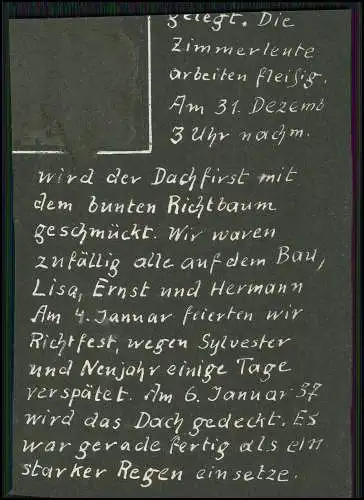 gelegt. Die
Zimmerleute
arbeiten fleißig.
Am 31. Dezemb
3 Uhr nachm.
wird der Dachfirst mit
dem bunten Richtbaum
geschmückt. Wir waren
zufällig alle auf dem Bau,
Lisa, Ernst und Hermann
Am 4. Januar feierten wir
Richtfest, wegen Sylvester
und Neujahr einige Tage
verspätet. Am 6. Januar 37
wird das Dach gedeckt. Es
war gerade fertig als ein
starker Regen einsetze.